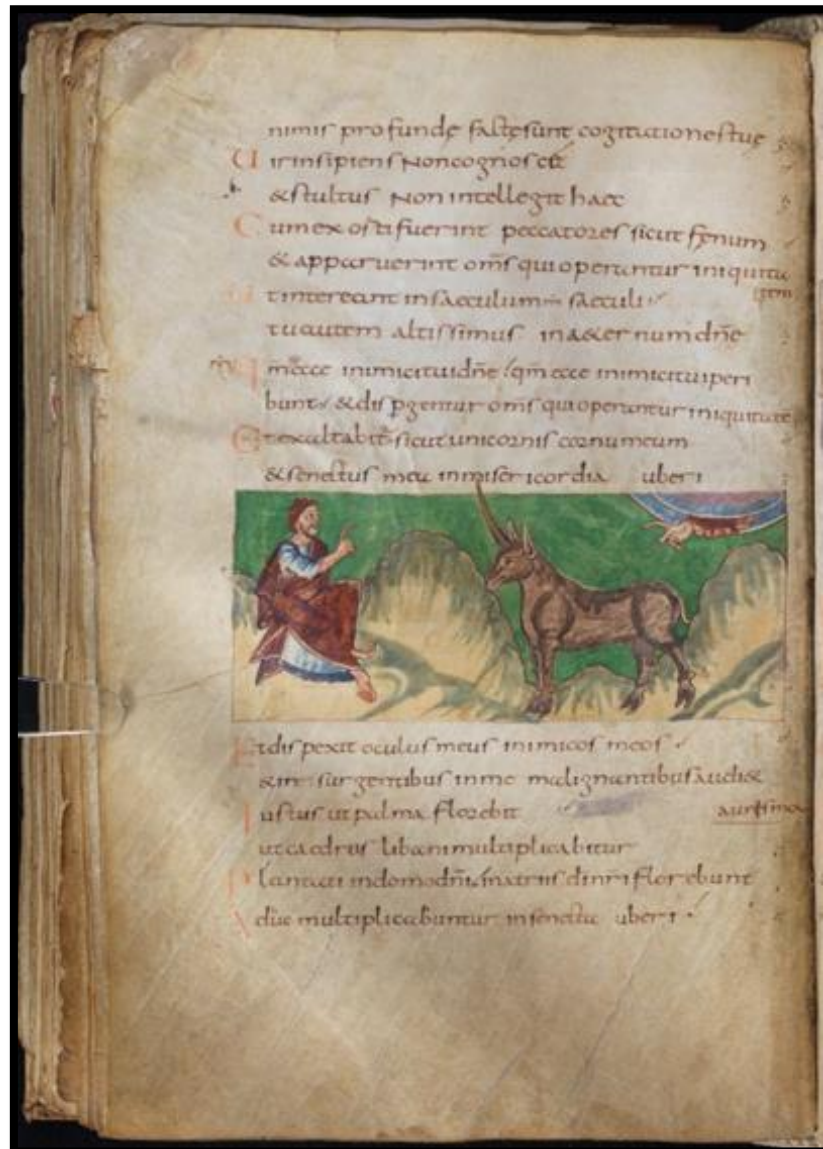 nimis profundę factę sunt cogitationes tuę
Uir insipiens Non cognoscet
& stultus Non intelleget haec
Cum exorti fuerint peccatores sicut fęnum
& apparuerint om̄s qui operantur iniquita
tem
Ut intereant in saeculum saeculi
tu autem altissimus in a&ernum dn̄e
Qm̄ ecce inimici tui dn̄e qm̄ ecce inimici tui peri
bunt & dispgentur om̄s qui operantur iniquitate
Et exaltabit sicut unicornis cornu meum
& senectus mea in misericordia uberi
Et dispexit oculus meus inimicos meos
& in surgentibus in me malignantibus audi&
Iustus ut palma florebit
ut caedrus libani multiplicabitur
Plantati in domo dn̄i in atriis di nr̄i florebunt
Adhuc multiplicabuntur in senecta uberi